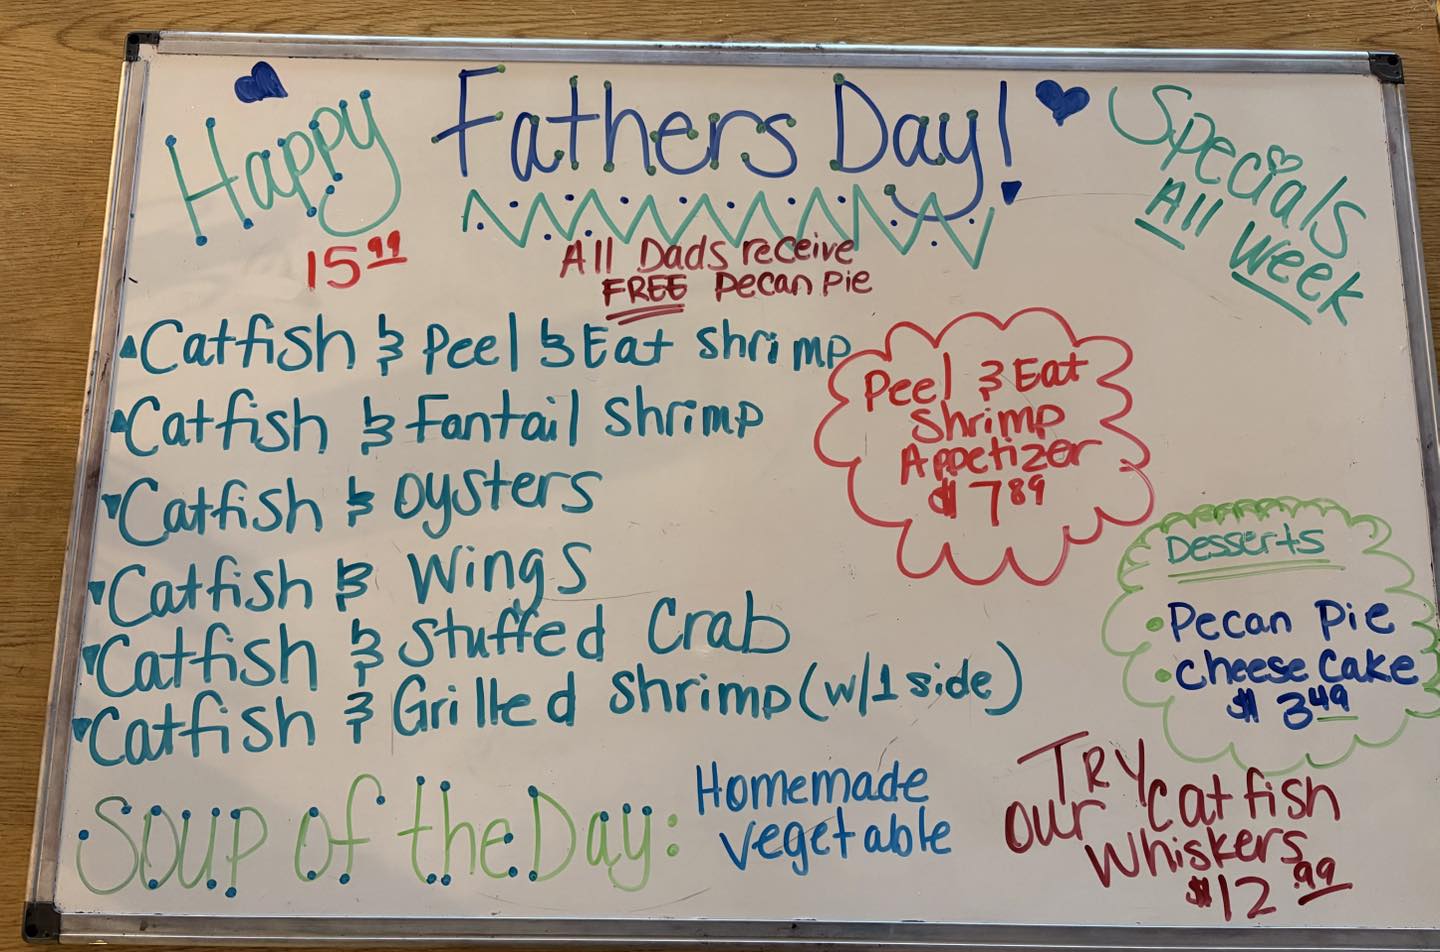 Happy Fathers Day!
Specials
All Week
15.99
All Dads receive
FREE Pecan Pie
Catfish & Peel & Eat Shrimp
Catfish & Fantail Shrimp
Catfish & Oysters
Catfish & Wings
Catfish & Stuffed Crab
Catfish & Grilled Shrimp (w/1 side)
Peel & Eat
Shrimp
Appetizer
$7.89
Desserts
• Pecan Pie
• Cheese Cake
$3.49
Soup of the Day:
Homemade
Vegetable
TRY
our Catfish
Whiskers
$12.99